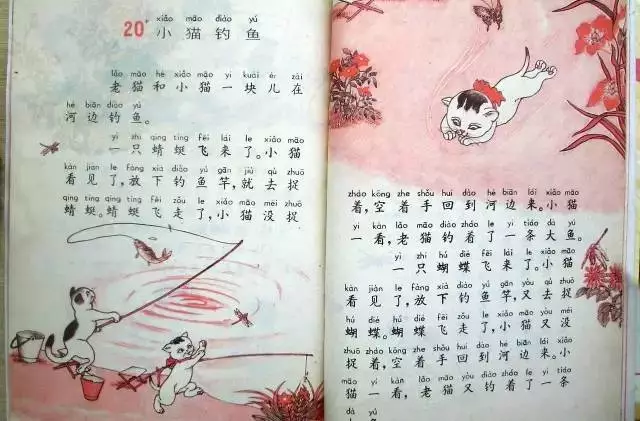 xiǎo māo diào yú
20* 小猫钓鱼
lǎo māo hé xiǎo māo yí kuài ér zài
老猫和小猫一块儿在
hé biān diào yú
河边钓鱼。
yì zhī qīng tíng fēi lái le xiǎo māo
一只蜻蜓飞来了。小猫
kàn jiàn le fàng xià diào yú gān jiù qù zhuō
看见了,放下钓鱼竿,就去捉
qīng tíng qīng tíng fēi zǒu le xiǎo māo méi zhuō
蜻蜓。蜻蜓飞走了,小猫没捉
zháo kōng zhe shǒu huí dào hé biān lái xiǎo māo
着,空着手回到河边来。小猫
yí kàn lǎo māo diào zháo le yì tiáo dà yú
一看,老猫钓着了一条大鱼。
yì zhī hú dié fēi lái le xiǎo māo
一只蝴蝶飞来了。小猫
kàn jiàn le fàng xià diào yú gān yòu qù zhuō
看见了,放下钓鱼竿,又去捉
hú dié hú dié fēi zǒu le xiǎo māo yòu méi
蝴蝶。蝴蝶飞走了,小猫又没
zhuō zháo kōng zhe shǒu huí dào hé biān lái xiǎo
捉着,空着手回到河边来。小
māo yí kàn lǎo māo yòu diào zháo le yì tiáo
猫一看,老猫又钓着了一条
dà yú